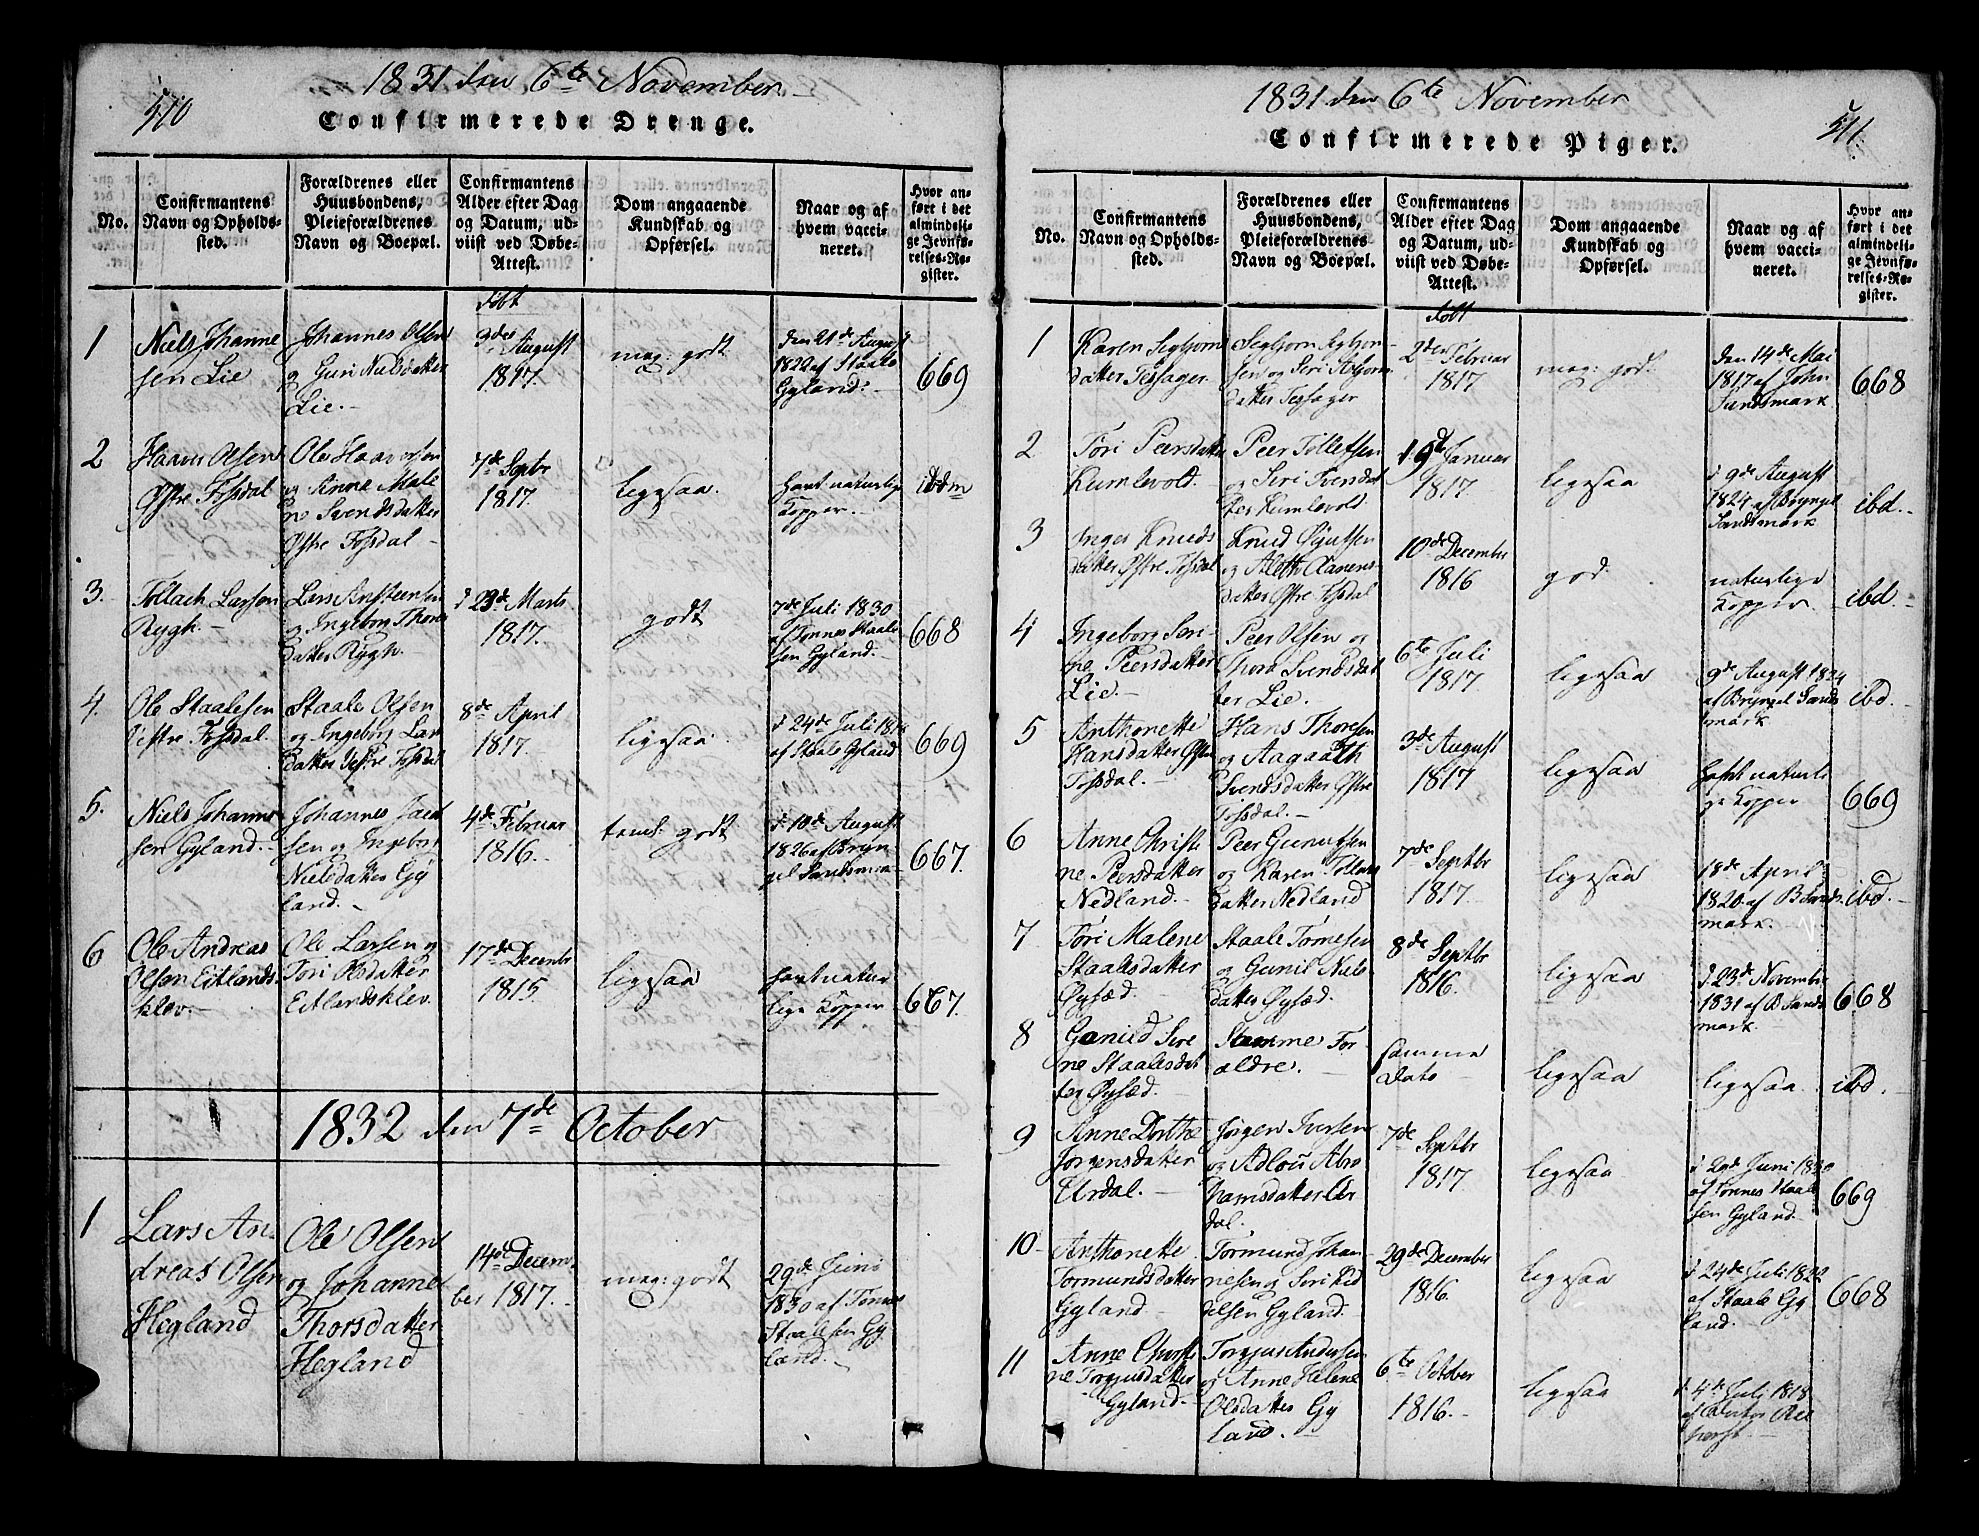 510
1831 den 6te November
Confirmerede Drenge.
No.
Confirmantens
Navn og Opholds-
sted.
Forældrenes eller
Huusbondens,
Pleieforældrenes
Navn og Boepæl.
Confirmantens
Alder efter Dag
og Datum, ud-
viist ved Døbe-
Attest.
Dom angaaende
Kundskab og
Opførsel.
Naar og af
hvem vacci-
neret.
Hvor an-
ført i det
almindeli-
ge Jevnfø-
relses-Re-
gister.
født
1
Niels Johanne
sen Lie
Johannes Olsen
og Guri Nielsdatter
Lie.
9de August
1817.
mag: godt
den 21de August
1822 af Staale
Gyland.
669
2
Haaver Olsen
Østre Fossdal
Ole Haaversen
og Anne Male
ne Svendsdatter
Østre Fossdal
7de Septbr
1817.
ligesaa.
havt naturlige
Kopper.
ibdm
3.
Tollach Larsen
Rygh.
Lars Anstensen
og Ingeborg Thores
datter Rygh.
d 23de Marts
1817.
godt
7de Juli 1830
af Tønnes Staale
sen Gyland.
668
4.
Ole Staalesen
Vestre Fossdal.
Staale Olsen
og Ingeborg Lars
datter Vestre Fossdal
8de April
1817.
ligesaa.
d 24de Juli
af Staale Gyland
669
5.
Niels Johanne
sen Gyland.
Johannes
sen og Ingebor
Nielsdatter Gy
land.
4de Februar
1816.
teml: godt
d 10de August
1826 af Bryn
gel Sandsmark
667.
6
Ole Andreas
Olsen Eitlands-
klev.
Ole Larsen og
Tori Olsdatter
Eitlandsklev.
17de Decembr
1815.
ligesaa
havt natur
lige Kopper
667.
1832 den 7de October
1
Lars An-
dreas Olsen
Hegland
Ole Olsen
og Johanne
Thorsdatter
Hegland
14de Decem-
ber 1817.
mag: godt
29de Juni
1830 af Tønnes
Staalesen Gy
land.
511.
1831 den 6te November
Confirmerede Piger.
No.
Confirmantens
Navn og Opholds-
sted.
Forældrenes eller
Huusbondens,
Pleieforældrenes
Navn og Boepæl.
Confirmantens
Alder efter Dag
og Datum, ud-
viist ved Døbe-
Attest.
Dom angaaende
Kundskab og
Opførsel.
Naar og af
hvem vacci-
neret.
Hvor an-
ført i det
almindeli-
ge Jevnfø-
relses-Re-
gister.
født
1
Karen Segbjørns
datter Tessager.
Segbjørn Segbjørn-
sen og Seri Asbjørns
datter Tessager
2den Februar
1817
mag: godt
den 14de Mai
1817 af John
Sandsmark
668
2
Tori Peersdatter
Kumlevold.
Peer Tolletsen
og Siri Svensdat
ter Kumlevold
19de Januar
1817
ligesaa
d 9de August
1824 af Bryngel
Sandsmark
ibd.
3
Inger Knuds
datter Østre Fossdal
Knud
og Aleth Aanens
datter Østre Fossdal
10de Decembr
1816
god.
naturlige
Kopper.
ibd.
4
Ingeborg Seri-
ne Peersdatter
Lie.
Peer Olsen og
Thora Svendsdat
ter Lie.
6te Juli
1817.
ligesaa
9de August 1824
af Bryngel Sands
mark
ibd.
5
Anthonette
Hansdatter Østre
Fossdal.
Hans Thorsen
og Aagaath
Svendsdatter Østre
Fossdal.
3de August
1817
ligesaa
havt naturli
ge Kopper
669
6
Anne Christi
ne Peersdatter
Nedland.
Peer Gunutsen
og Karen Tollevs
datter Nedland
7de Septbr
1817.
ligesaa
18de April
1820 af B Sands-
mark.
ibd.
7
Tori Malene
Staalsdatter
Øysæd.
Staale Tørresen
og Gunil Niels
datter Øysæd.
8de Septbr
1816.
ligesaa
d 23de November
1831 af B Sands
mark
668
8
Gunild Sere
ne Staalesdat
ter Øysæd
Samme For
ældre.
samme
Dato
ligesaa
ligesaa
ibd.
9
Anne Dorthe
Jørgensdatter
Urdal.
Jørgen Iversen
og Adlou Abra
hamsdatter Ur
dal.
7de Septbr
1817.
ligesaa
d 29de Juni 1830
af Tønnes Staale
sen Gyland.
669
10
Anthonette
Tormundsdatter
Gyland.
Tormund Johan
nesen og Seri
Gyland.
29de December
1816.
ligesaa
d 24de Juli 1822
af Staale Gy
land.
668
11
Anne Christi
ne Torgjusdatter
Gyland.
Torgjus Andersen
og Anne Helene
Olsdatter Gy
land.
6te October
1816.
ligesaa
d 4de Juli 1818